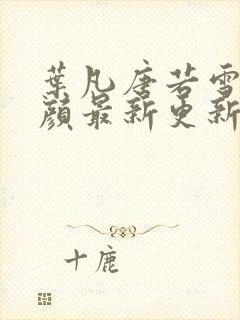 葉凡唐若雪
顔最新更新
十鹿